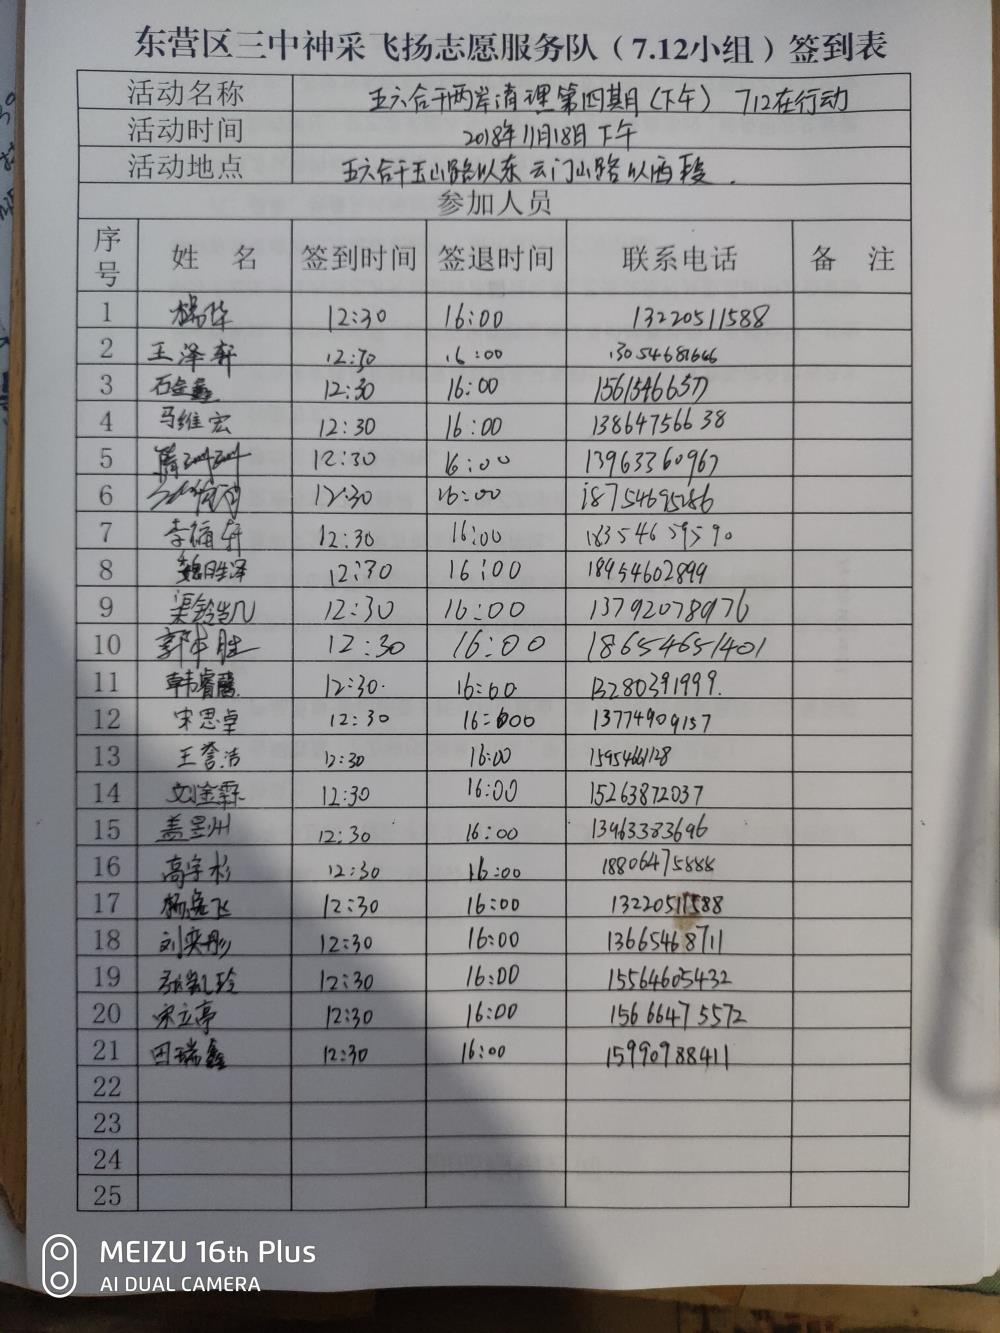 东营区三中神采飞扬志愿服务队（7.12小组）签到表
活动名称 五六合干两岸清理第四期（下午） 712在行动
活动时间 2018年11月18日下午
活动地点 五六合干玉山路以东 云门山路以西段.
参加人员
序号 姓 名 签到时间 签退时间 联系电话 备 注
1 杨华 12:30 16:00 13220511588
2 王泽轩 12:30 16:00 13054681666
3 石金鑫 12:30 16:00 15615466577
4 马维宏 12:30 16:00 13864756638
5 12:30 16:00 13963360967
6 12:30 16:00 18754695186
7 李 轩 12:30 16:00 18354659590
8 魏胜泽 12:30 16:00 18954602899
9 12:30 16:00 13792078976
10 郭 胜 12:30 16:00 18654651401
11 韩睿 12:30. 16:00 13280391999.
12 宋思卓 12:30 16:000 13774909157
13 王誉洁 12:30 16:00 15954661128
14 刘金霖 12:30 16:00 15263872037
15 盖昱州 12:30 16:00 13963383696
16 高宇杉 12:30 16:00 18806475888
17 杨逸飞 12:30 16:00 13220511588
18 刘奕彤 12:30 16:00 13665468711
19 张凯玲 12:30 16:00 15564605432
20 宋立亭 12:30 16:00 15666475572
21 田瑞鑫 12:30 16:00 15990988411
22
23
24
25
MEIZU 16th Plus
AI DUAL CAMERA